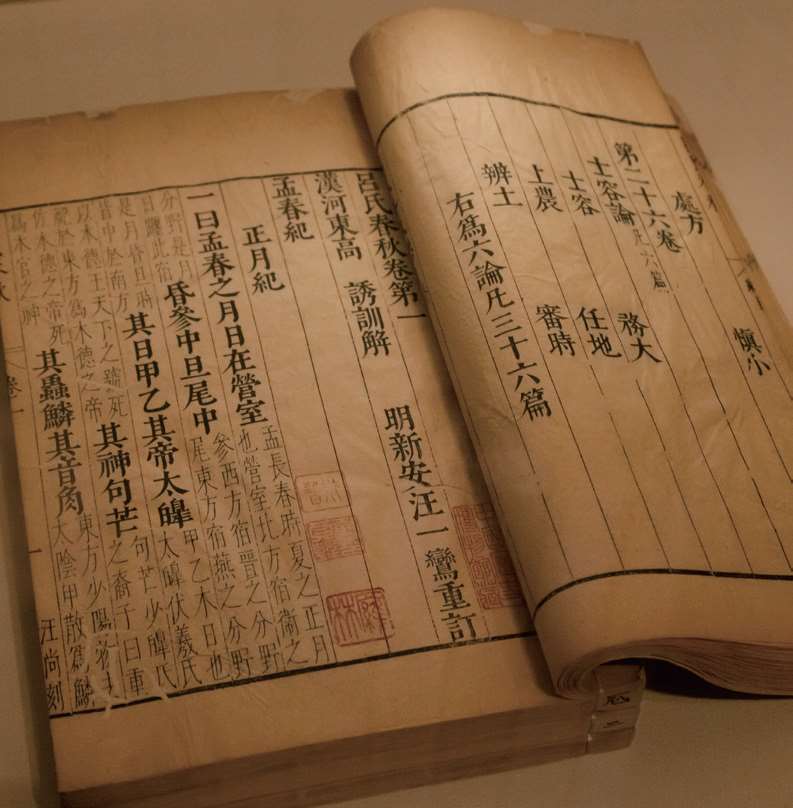 處方 慎小
第二十六卷
士容論凡六篇
士容 務大
上農 任地
辨土 審時
右爲六論凡三十六篇
呂氏春秋卷第一
漢河東高 誘訓解 明新安汪一鸞重訂
孟春紀
正月紀
一曰孟春之月日在營室孟長春時夏之正月也營室北方宿衞之
分野是月日躔此宿昏參中旦尾中參西方宿晉之分野尾東方宿燕之分野
是月昏旦時皆中於南方其日甲乙其帝太皞甲乙木日也太皞伏羲氏
以木德王天下之號死祀於東方爲木德之帝其神句芒句芒少皞氏之裔子曰重
佐木德之帝死爲木官之神其蟲鱗其音角東方少陽物去太陰甲散爲鱗
卷一
汪尚刻